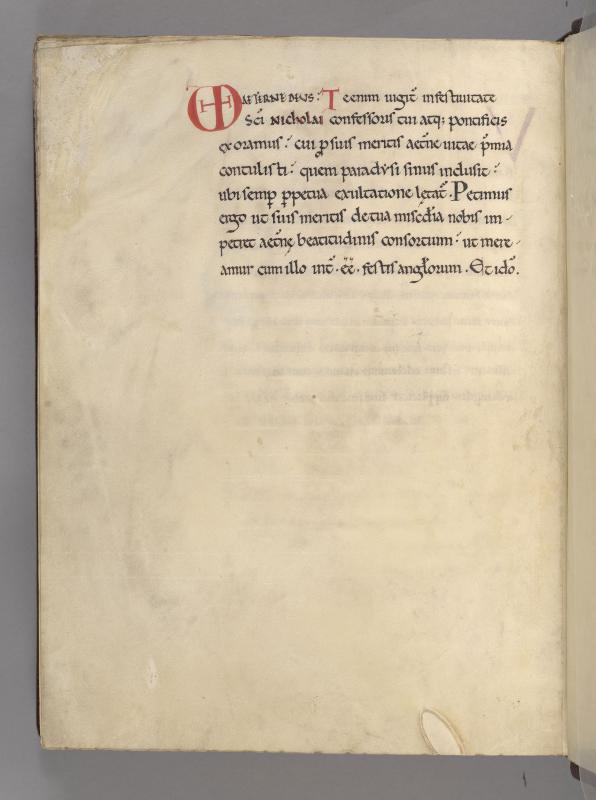 VD AETERNE DEUS: Te enim iugit̄ in festiuitate
Sc̄i Nicholai confessoris tui atq; pontificis
exoramus: cui ꝑ suis meritis aet̄ne uitae p̄mia
contulisti: quem paradysi sinus inclusit:
ubi semꝑ ꝑpetua exultatione lętat̄. Petimus
ergo ut suis meritis de tua misc̄dia nobis im-
petret aet̄nę beatitudinis consortium: ut mere-
amur cum illo int̄.ee̅.festis angl̄orum. Et ido̅.